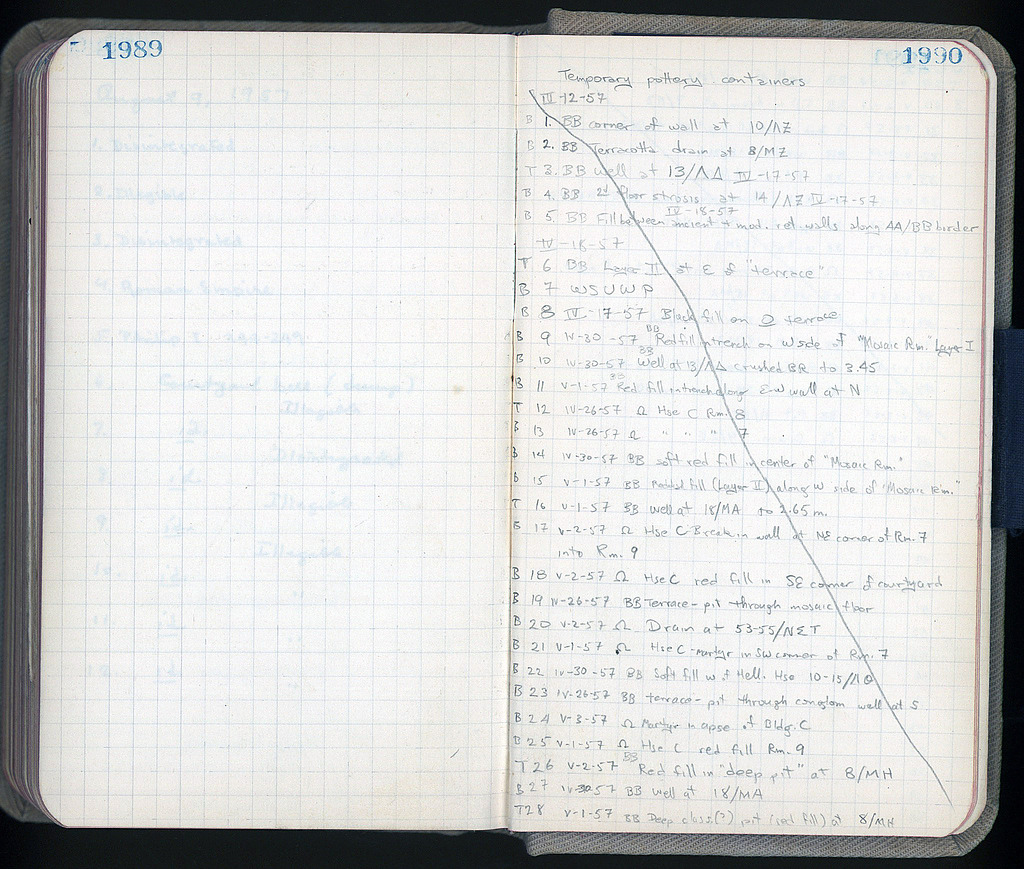 1989
1990
Temporary pottery containers
III-12-57
B 1. BB corner of wall at 10/ΛΖ
B 2. BB Terracotta drain at 8/ΜΖ
T 3. BB well at 13/ΛΔ IV-17-57
B 4. BB 2d floor strosis at 14/ΛΖ IV-17-57
IV-18-57
B 5. BB Fill between ancient + mod. ret. walls along AA/BB border
IV-18-57
T 6 BB Layer II at E of "terrace"
B 7 WSUWP
B 8 IV-17-57 Black fill on terrace
B 9 IV-30-57 BB Red fill in trench on W side of "Mosaic Rm." Layer I
B 10 IV-30-57 BB Well at 13/ΛΔ crushed BR to 3.45
B 11 V-1-57 BB Red fill in trench along E-W wall at N
T 12 IV-26-57 Ω Hse C Rm. 8
B 13 IV-26-57 Ω " " " 7
B 14 IV-30-57 BB soft red fill in center of "Mosaic Rm."
B 15 V-1-57 BB fill (Layer II) along W side of "Mosaic Rm."
T 16 V-1-57 BB well at 18/ΜΑ to 2.65 m.
B 17 V-2-57 Ω Hse C-Break in wall at NE corner of Rm. 7
into Rm. 9
B 18 V-2-57 Ω Hse C red fill in SE corner of courtyard
B 19 IV-26-57 BB Terrace-pit through mosaic floor
B 20 V-2-57 Ω Drain at 53-55/ΝΣΤ
B 21 V-1-57 Ω Hse C-martyr in SW corner of Rm. 7
B 22 IV-30-57 BB Soft fill W of Hell. Hse 10-15/ΛΘ
B 23 IV-26-57 BB terrace-pit through conglom well at S
B 24 V-3-57 Ω Martyr in apse of Bldg. C
B 25 V-1-57 Ω Hse C red fill Rm. 9
T 26 V-2-57 BB Red fill in "deep pit" at 8/ΜΗ
B 27 IV-30-57 BB well at 18/ΜΑ
T 28 V-1-57 BB Deep class(?) pit (red fill) at 8/ΜΗ